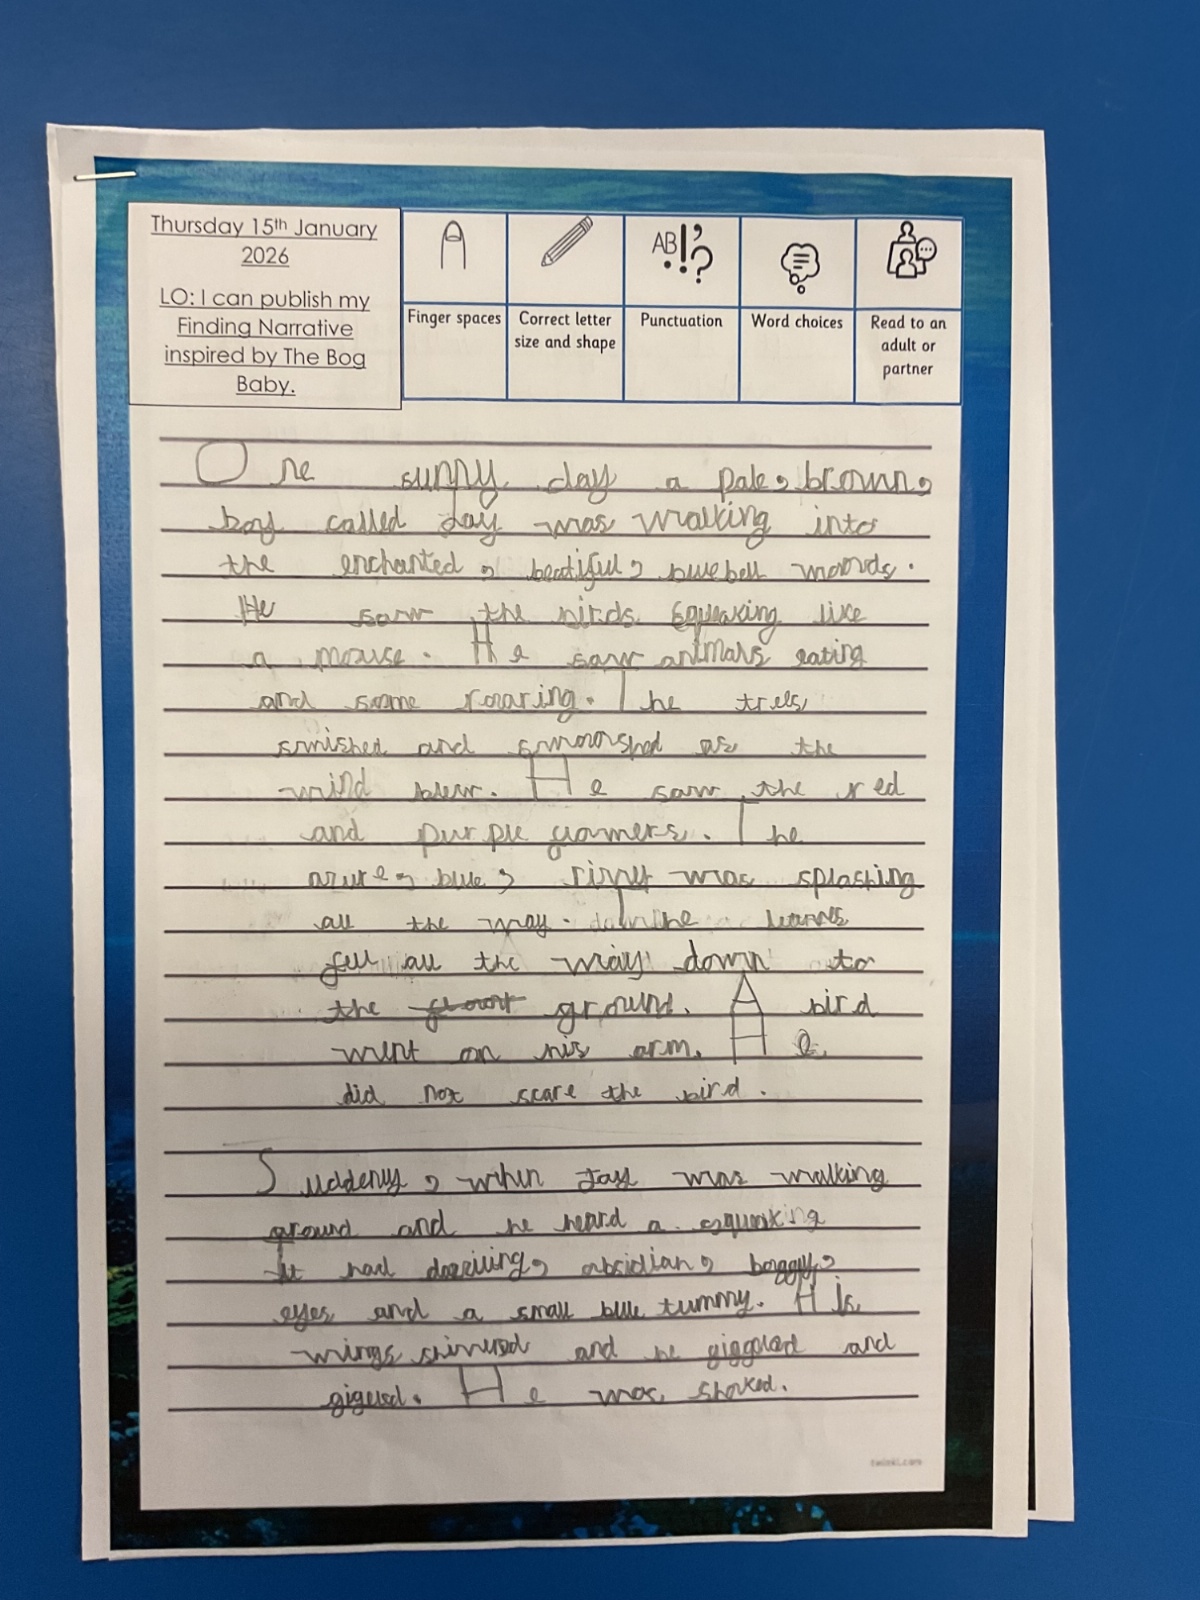 Thursday 15th January
2026
LO: I can publish my
Finding Narrative
inspired by The Bog
Baby.
AB
Finger spaces
Correct letter
size and shape
Punctuation
Word choices
Read to an
adult or
partner
One sunny day a pale, brown,
boy called Jay was walking into
the enchanted, beatiful, bluebell woods.
He saw the birds squeaking like
a mouse. He saw animals eating
and some roaring. The trees
swished and swooshed as the
wind blew. He saw the red
and purple
The
azure, blue, river was splashing
all the way. The leaves
fell all the way down to
the ground. A bird
went on his arm. He
did not scare the bird.
Suddenly, when Jay was walking
around and he heard a squeaking
It had dazziling, obsidian, boggy,
eyes and a small blue tummy. His
wings and he and
He was shocked.
twinkl.com